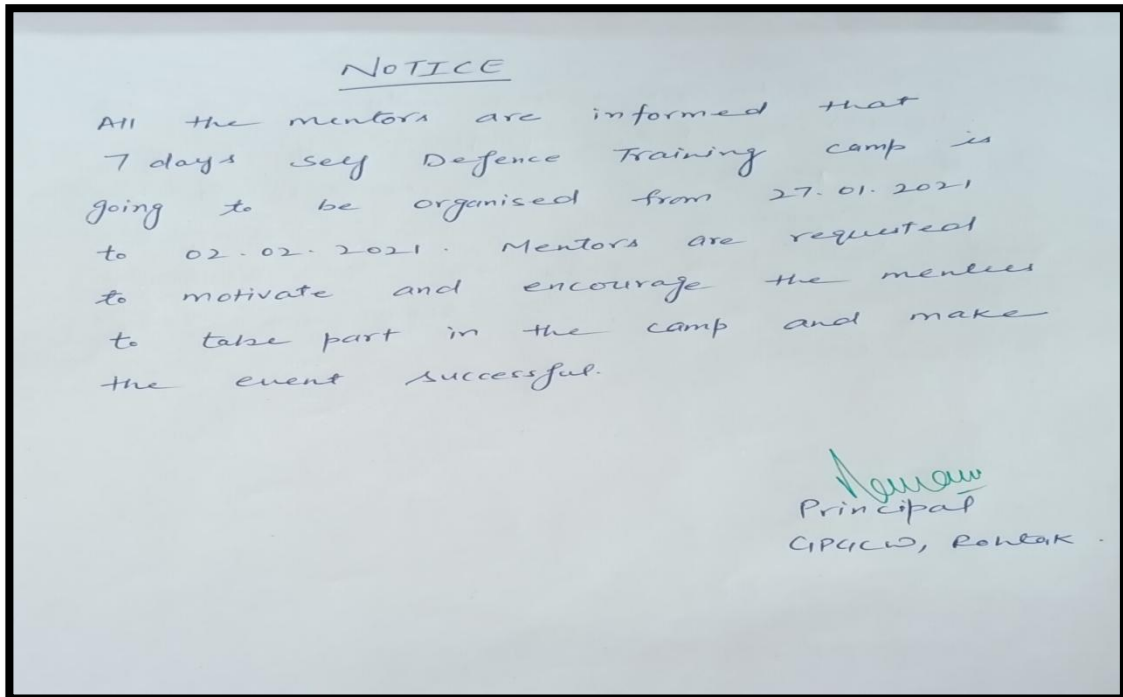 NOTICE
All the mentors are informed that
7 days self Defence Training camp is
going to be organised from 27.01.2021
to 02.02.2021. Mentors are requested
to motivate and encourage the mentees
to take part in the camp and make
the event successful.
Principal
GPGCW, Rohtak.